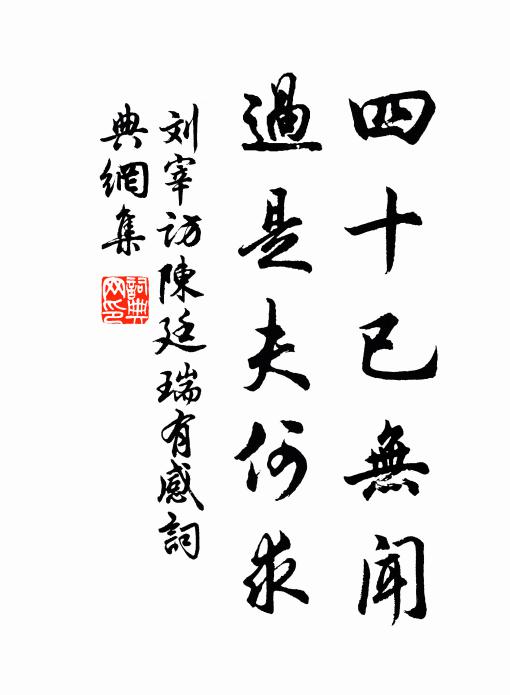 四十已無聞
過是夫何求
刘宰访陳廷瑞有感詞
典網集
詞典
网印